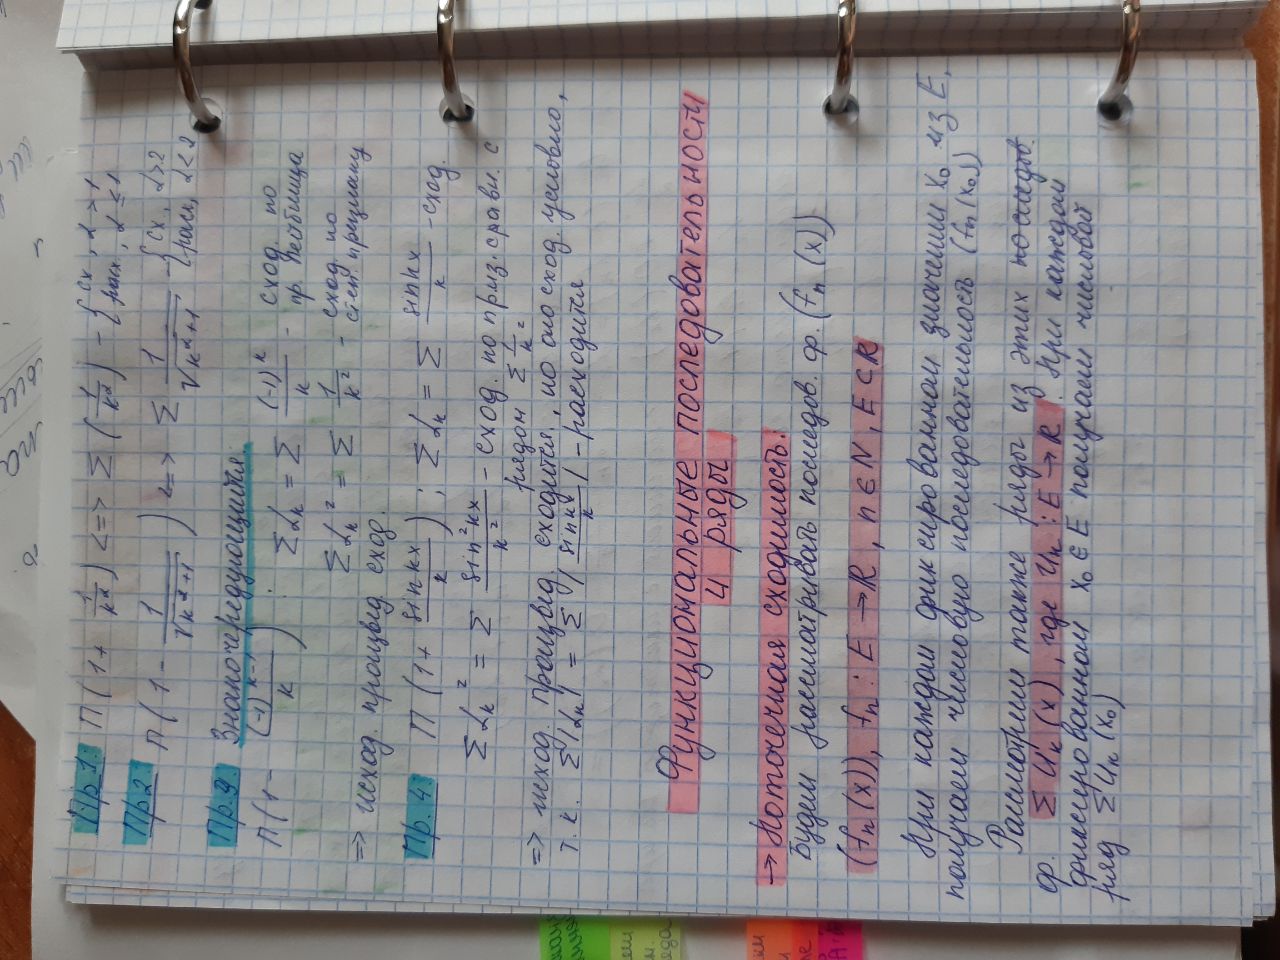 Пр 1: П(1 + 1/k^α) <=> Σ(1/k^α) - { сх, α > 1
расх., α ≤ 1
Пр 2: П(1 - 1/√(k^α+1)) <=> Σ 1/√(k^α+1) - { сх, α>2
расх, α≤2
Пр. 3. Знакочередующийся.
П(1 - (-1)^(k-1)/k) : Σ α_k = Σ (-1)^k/k - сход. по
пр. Лейбница
Σ α_k² = Σ 1/k² - сход по
степ. признаку
=> исход. произвед. сход.
Пр. 4: П(1 + sin kx/k) ; Σ α_k = Σ sin kx/k - сход.
Σ α_k² = Σ sin² kx/k² - сход. по приз. сравн. с
рядом Σ 1/k²
=> исход. произвед. сходится, но оно сход. условно,
т.к. Σ|α_k| = Σ |sin kx/k| - расходится
Функциональные последовательности
и ряды
→ Поточечная сходимость:
Будем рассматривать последов. ф. (fn (x))
(fn (x)), fn : E → R, n ∈ N, E ⊂ R
При каждом фиксированном значении x₀ из E,
получаем числовую последовательность (fn (x₀))
Рассмотрим также ряды из этих последов.
ф. Σ Uk (x), где Uk : E → R. При каждом
фиксированном x₀ ∈ E получаем числовой
ряд Σ Uk (x₀)